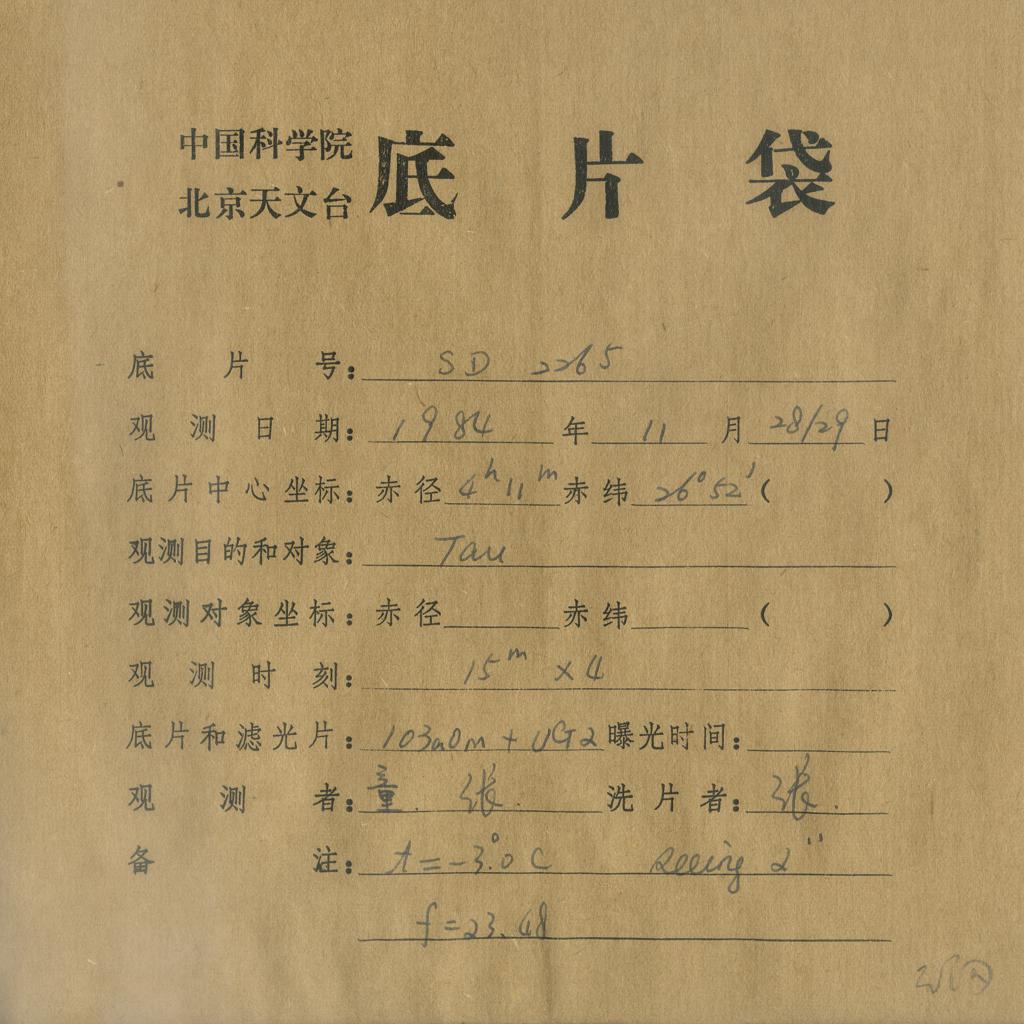 中国科学院
北京天文台
底片袋
底片号: SD 2265
观测日期: 1984年11月28/29日
底片中心坐标: 赤径 4ʰ11ᵐ 赤纬 26°52′ ( )
观测目的和对象: Tau
观测对象坐标: 赤径 赤纬 ( )
观测时刻: 15ᵐ ×4
底片和滤光片: 103a0m + UG2 曝光时间:
观测者: 童. 张. 洗片者: 张.
备注: t = -3°.0 C seeing 2″
f = 23.48